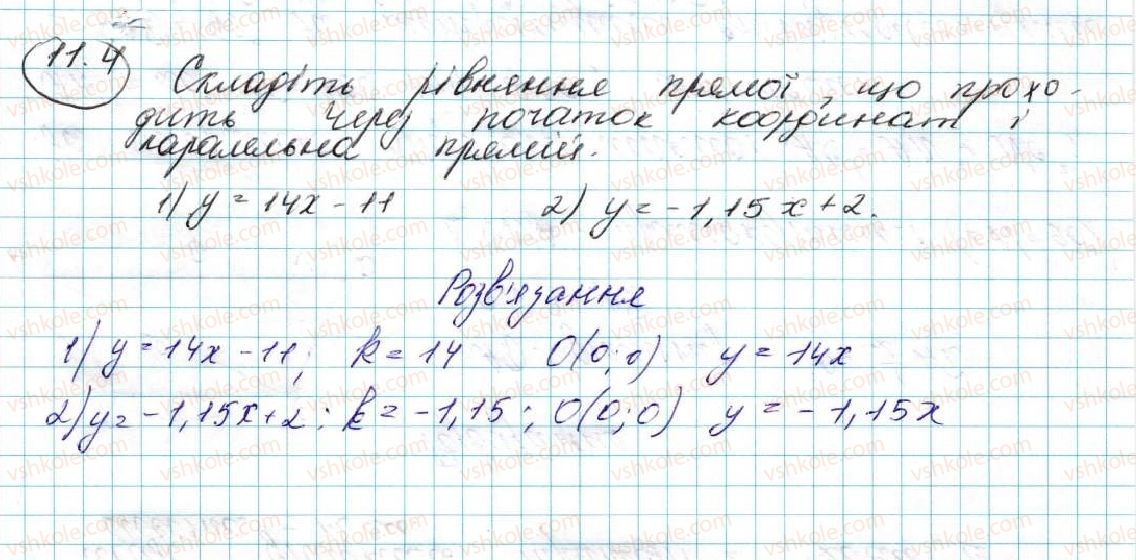 11.4
Складіть рівняння прямої, що прохо-
дить через початок координат і
паралельна прямій.
1) y = 14x - 11 2) y = -1,15x + 2.
Розв'язання
1) y = 14x - 11; k = 14 O(0;0) y = 14x
2) y = -1,15x + 2; k = -1,15; O(0;0) y = -1,15x
vshkole.com